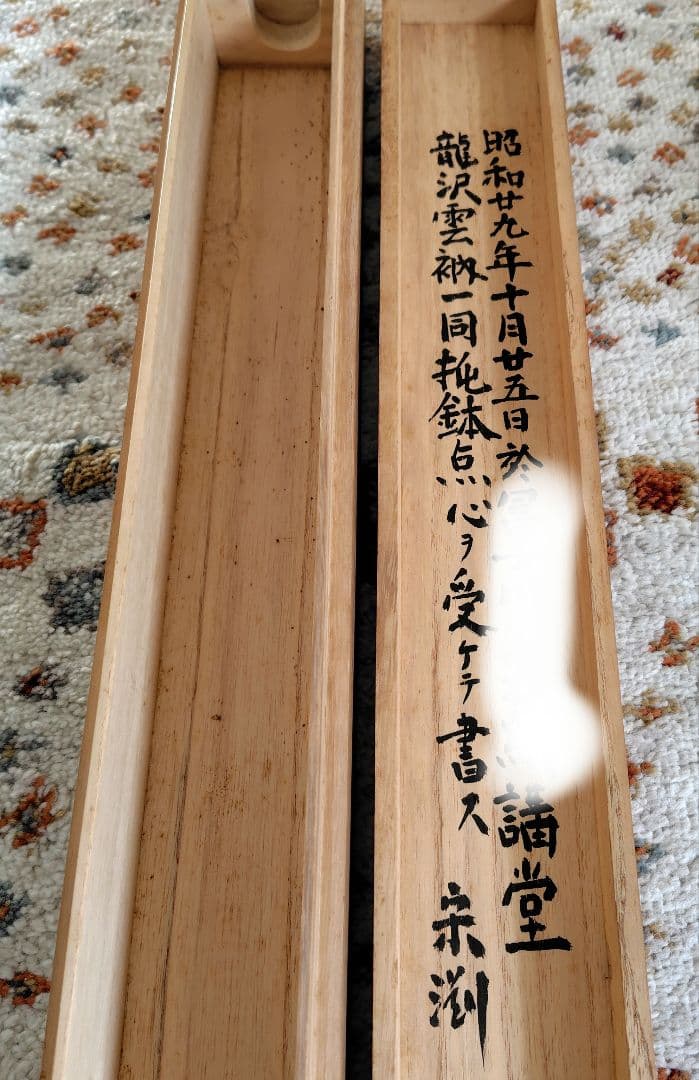 昭和廿九年十月廿五日於講堂
龍沢雲衲一同托鉢点心ヲ受ケテ書ス 宋渕